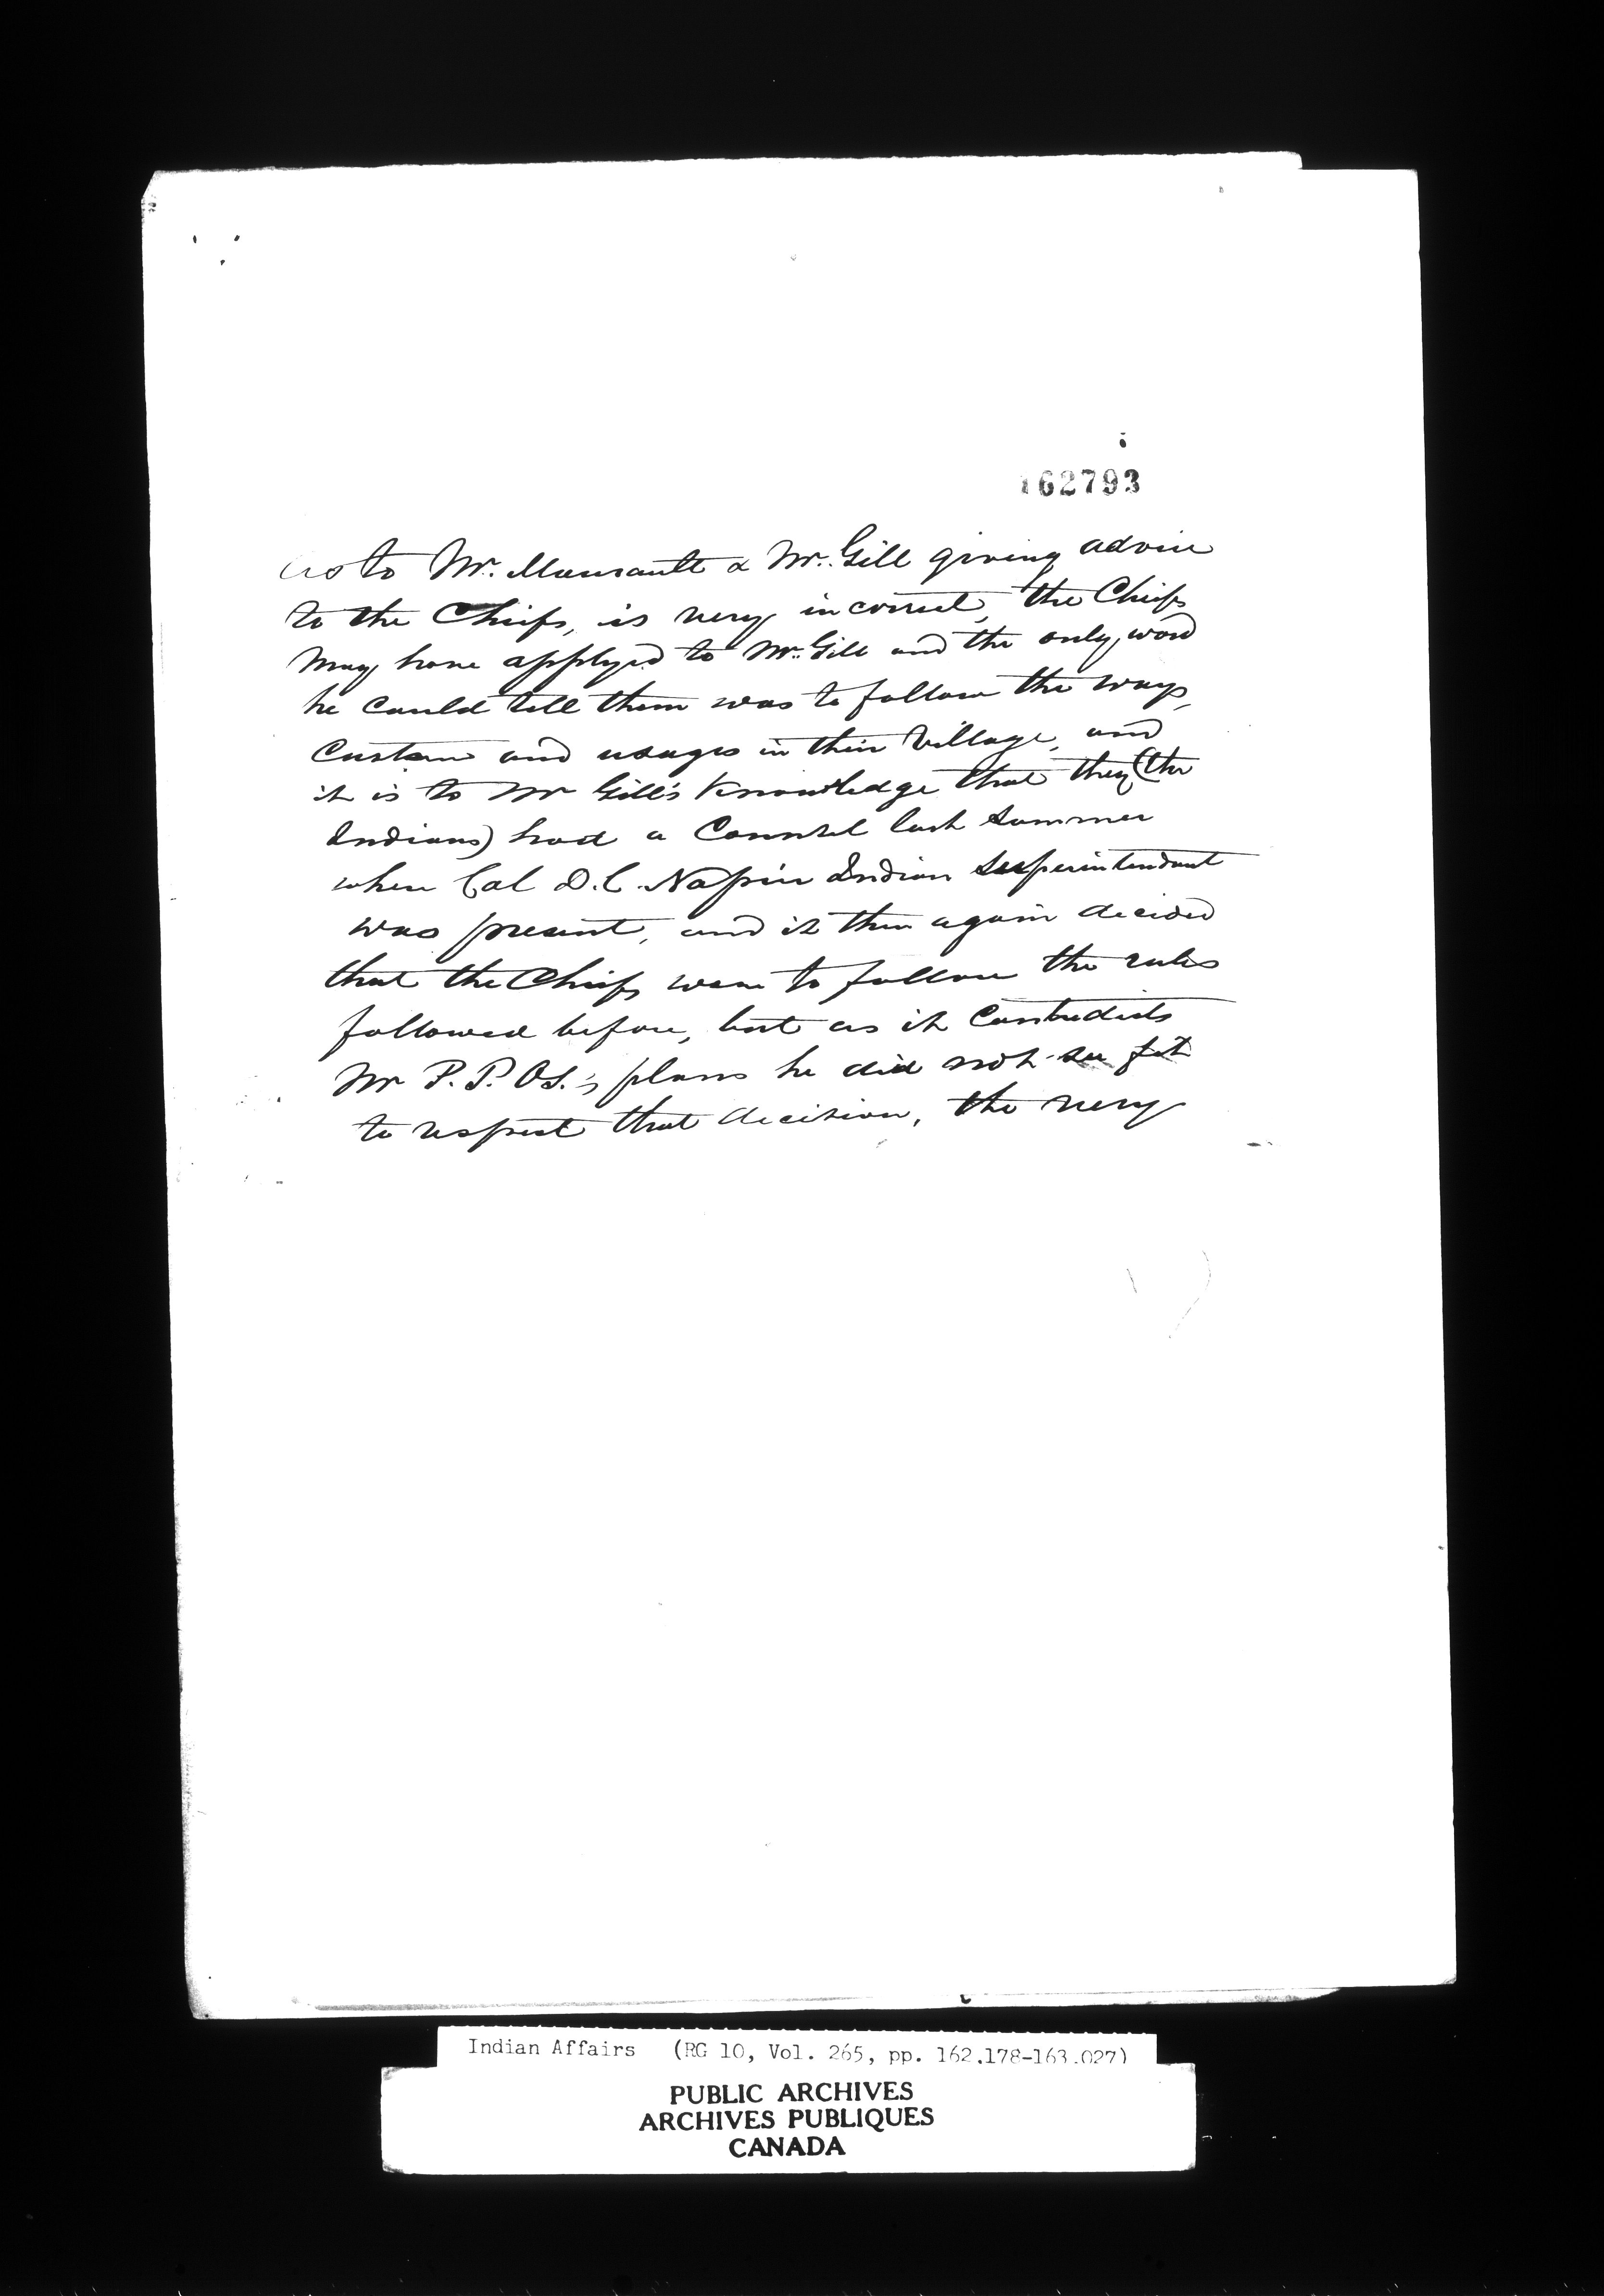 162793
as to Mr. Maurault & Mr. Gill giving advice
to the Chiefs, is very incorrect, the Chiefs
may have applyed to Mr. Gill and the only word
he could tell them was to follow the ways,
Custom and usages in their Village, and
it is to Mr Gill's Knowledge that they (the
Indians) had a Counsel last Summer
when Col D.C. Napier Indian Superintendant
was present, and it then again decided
that the Chiefs were to follow the rules
followed before, but as it Contradicts
Mr P. P. Os.'s plans he did not see fit
to respect that decision, the very
Indian Affairs (RG 10, Vol. 265, pp. 162,178-163,027)
PUBLIC ARCHIVES
ARCHIVES PUBLIQUES
CANADA